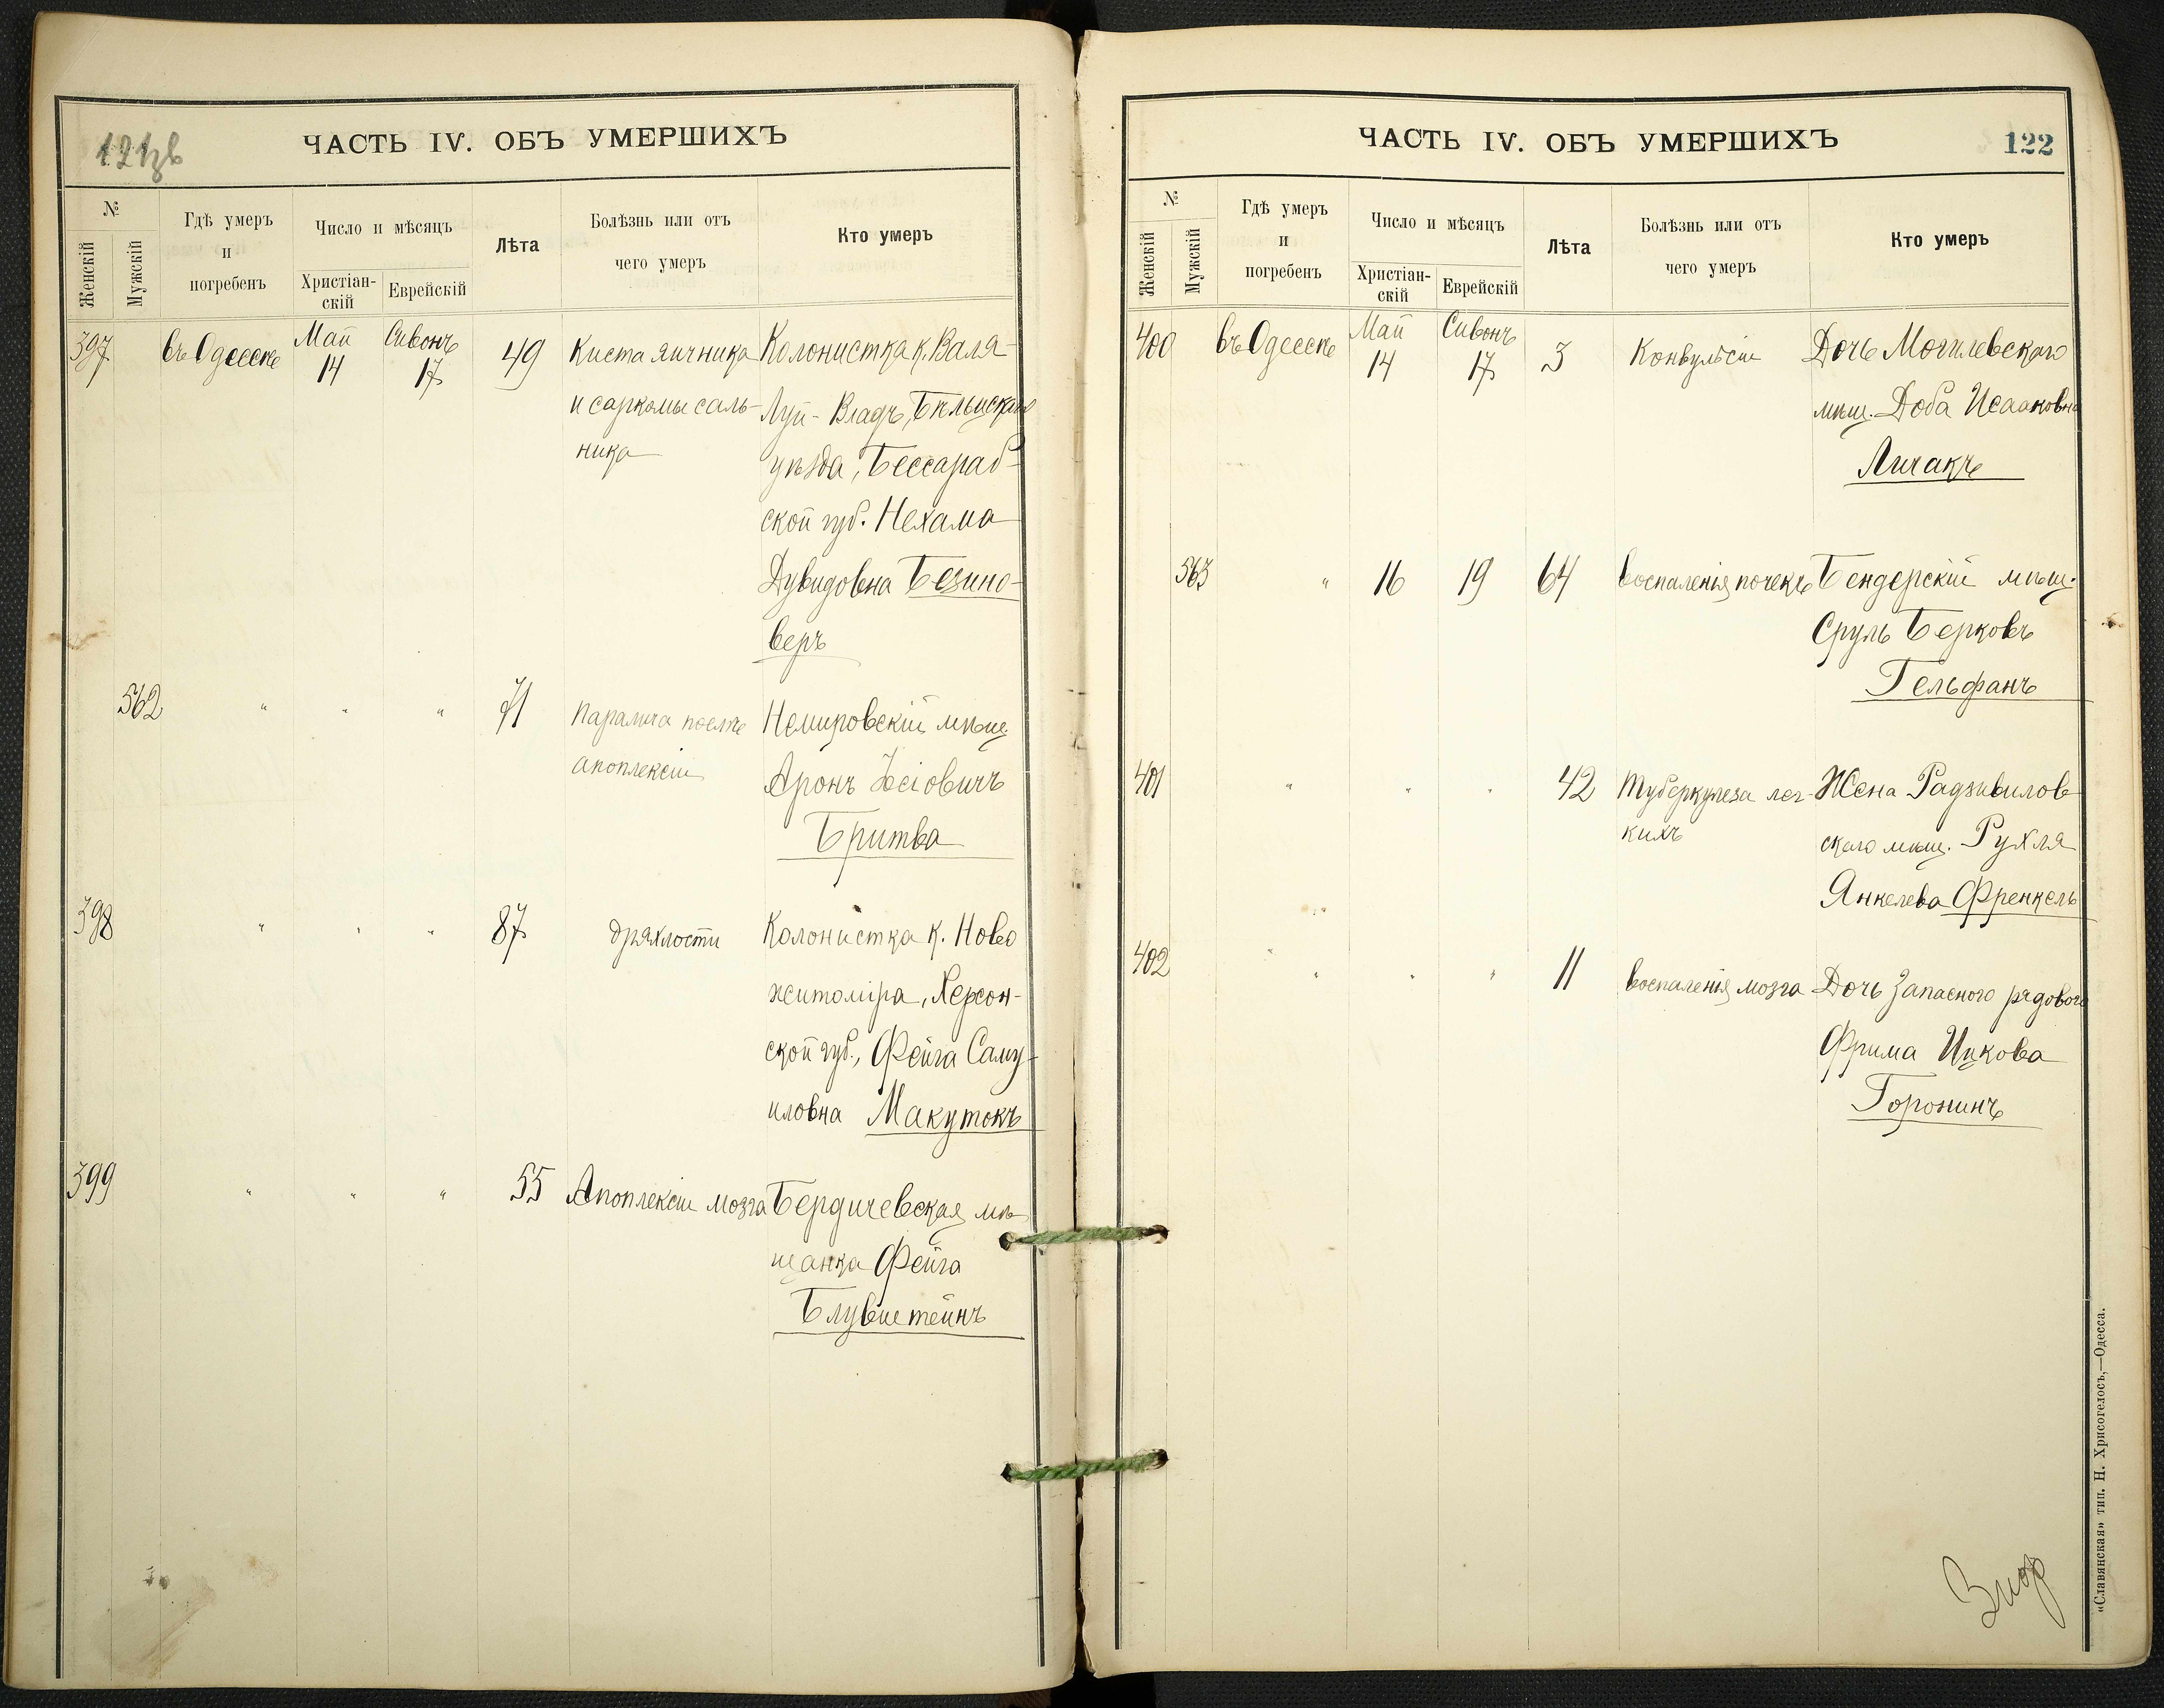 121зв
ЧАСТЬ IV. ОБЪ УМЕРШИХЪ
№
Женскій
Мужскій
Гдѣ умеръ
и
погребенъ
Число и мѣсяцъ
Христіан-
скій
Еврейскій
Лѣта
Болѣзнь или отъ
чего умеръ
Кто умеръ
397 въ Одессѣ Май 14 Сивонъ 17 49 Киста яичника Колонистка к. Валя-
и саркомы саль- Луй-Владъ, Бѣльцскаго
ника уѣзда, Бессараб-
ской губ. Нехама
Дувидовна Безино-
веръ
562 " " " 71 Паралича послѣ Немировскій мѣщ.
апоплексіи Аронъ Іосіовичъ
Бритва
398 " " " 87 дряхлости Колонистка к. Ново
житоміра, Херсон-
ской губ., Фейга Саму-
иловна Макутокъ
399 " " " 55 Апоплексіи мозга Бердичевская мѣ-
щанка Фейга
Блувштейнъ
ЧАСТЬ IV. ОБЪ УМЕРШИХЪ
122
№
Женскій
Мужскій
Гдѣ умеръ
и
погребенъ
Число и мѣсяцъ
Христіан-
скій
Еврейскій
Лѣта
Болѣзнь или отъ
чего умеръ
Кто умеръ
400 въ Одессѣ Май 14 Сивонъ 17 3 Конвульсіи Дочь Могилевскаго
мѣщ. Доба Исааковна
Личакъ
563 " 16 19 64 воспаленія почекъ Бендерскій мѣщ.
Сруль Берковъ
Гельфанъ
401 " " " 42 Туберкулеза лег- Жена Радзивилов
кихъ скаго мѣщ. Рухля
Янкелева Френкель
402 " " " 11 воспаленія мозга Дочь запаснаго рядового
Фрима Ицкова
Горонинъ
«Славянская» тип. Н. Хрисогелосъ,—Одесса.